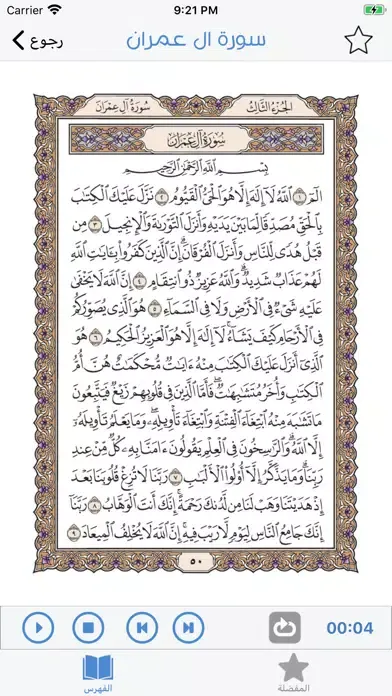 Carrier 9:21 PM
رجوع سورة آل عمران
سورة آل عمران الجزء الثالث
سورة آل عمران
بسم الله الرحمن الرحيم
الٓمٓ ١ ٱللَّهُ لَآ إِلَٰهَ إِلَّا هُوَ ٱلْحَىُّ ٱلْقَيُّومُ ٢ نَزَّلَ عَلَيْكَ ٱلْكِتَٰبَ
بِٱلْحَقِّ مُصَدِّقًا لِّمَا بَيْنَ يَدَيْهِ وَأَنزَلَ ٱلتَّوْرَىٰةَ وَٱلْإِنجِيلَ ٣ مِن
قَبْلُ هُدًى لِّلنَّاسِ وَأَنزَلَ ٱلْفُرْقَانَ إِنَّ ٱلَّذِينَ كَفَرُوا۟ بِـَٔايَٰتِ ٱللَّهِ
لَهُمْ عَذَابٌ شَدِيدٌ وَٱللَّهُ عَزِيزٌ ذُو ٱنتِقَامٍ ٤ إِنَّ ٱللَّهَ لَا يَخْفَىٰ
عَلَيْهِ شَىْءٌ فِى ٱلْأَرْضِ وَلَا فِى ٱلسَّمَآءِ ٥ هُوَ ٱلَّذِى يُصَوِّرُكُمْ
فِى ٱلْأَرْحَامِ كَيْفَ يَشَآءُ لَآ إِلَٰهَ إِلَّا هُوَ ٱلْعَزِيزُ ٱلْحَكِيمُ ٦ هُوَ
ٱلَّذِىٓ أَنزَلَ عَلَيْكَ ٱلْكِتَٰبَ مِنْهُ ءَايَٰتٌ مُّحْكَمَٰتٌ هُنَّ أُمُّ
ٱلْكِتَٰبِ وَأُخَرُ مُتَشَٰبِهَٰتٌ فَأَمَّا ٱلَّذِينَ فِى قُلُوبِهِمْ زَيْغٌ فَيَتَّبِعُونَ
مَا تَشَٰبَهَ مِنْهُ ٱبْتِغَآءَ ٱلْفِتْنَةِ وَٱبْتِغَآءَ تَأْوِيلِهِۦ وَمَا يَعْلَمُ تَأْوِيلَهُۥٓ
إِلَّا ٱللَّهُ وَٱلرَّٰسِخُونَ فِى ٱلْعِلْمِ يَقُولُونَ ءَامَنَّا بِهِۦ كُلٌّ مِّنْ عِندِ
رَبِّنَا وَمَا يَذَّكَّرُ إِلَّآ أُو۟لُوا۟ ٱلْأَلْبَٰبِ ٧ رَبَّنَا لَا تُزِغْ قُلُوبَنَا بَعْدَ
إِذْ هَدَيْتَنَا وَهَبْ لَنَا مِن لَّدُنكَ رَحْمَةً إِنَّكَ أَنتَ ٱلْوَهَّابُ ٨ رَبَّنَآ
إِنَّكَ جَامِعُ ٱلنَّاسِ لِيَوْمٍ لَّا رَيْبَ فِيهِ إِنَّ ٱللَّهَ لَا يُخْلِفُ ٱلْمِيعَادَ ٩
٥٠
00:04
الفهرس المفضلة